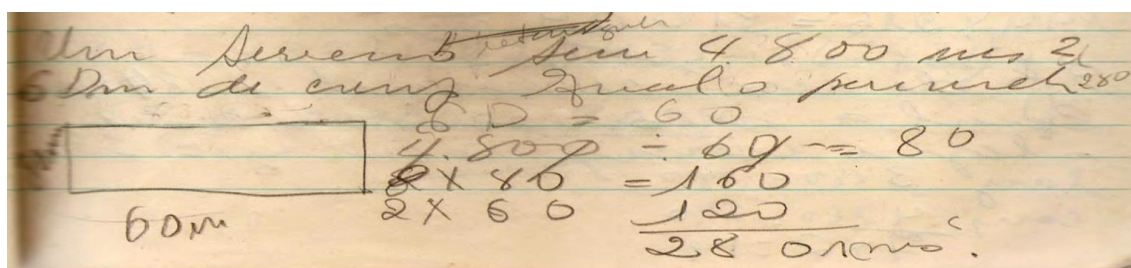 Um terreno tem 4.800 ms 2
6 Dm de comp Qual o perimet 280
6 D = 60
4.800 ÷ 60 = 80
2 x 80 = 160
2 x 60 120
60m
280